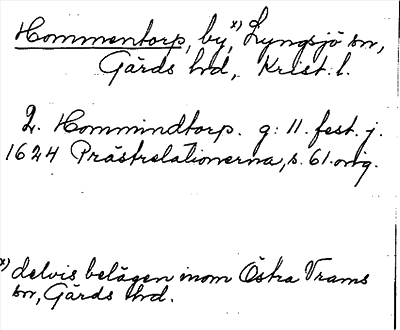 Hommentorp, by,x) Lyngsjö sn,
Gärds hd, Krist. l.
2. Hommindtorp. g: 11. fest. j.
1624 Prästrelationerna, s. 61. orig.
x) delvis belägen inom Östra Vrams
sn, Gärds hd.